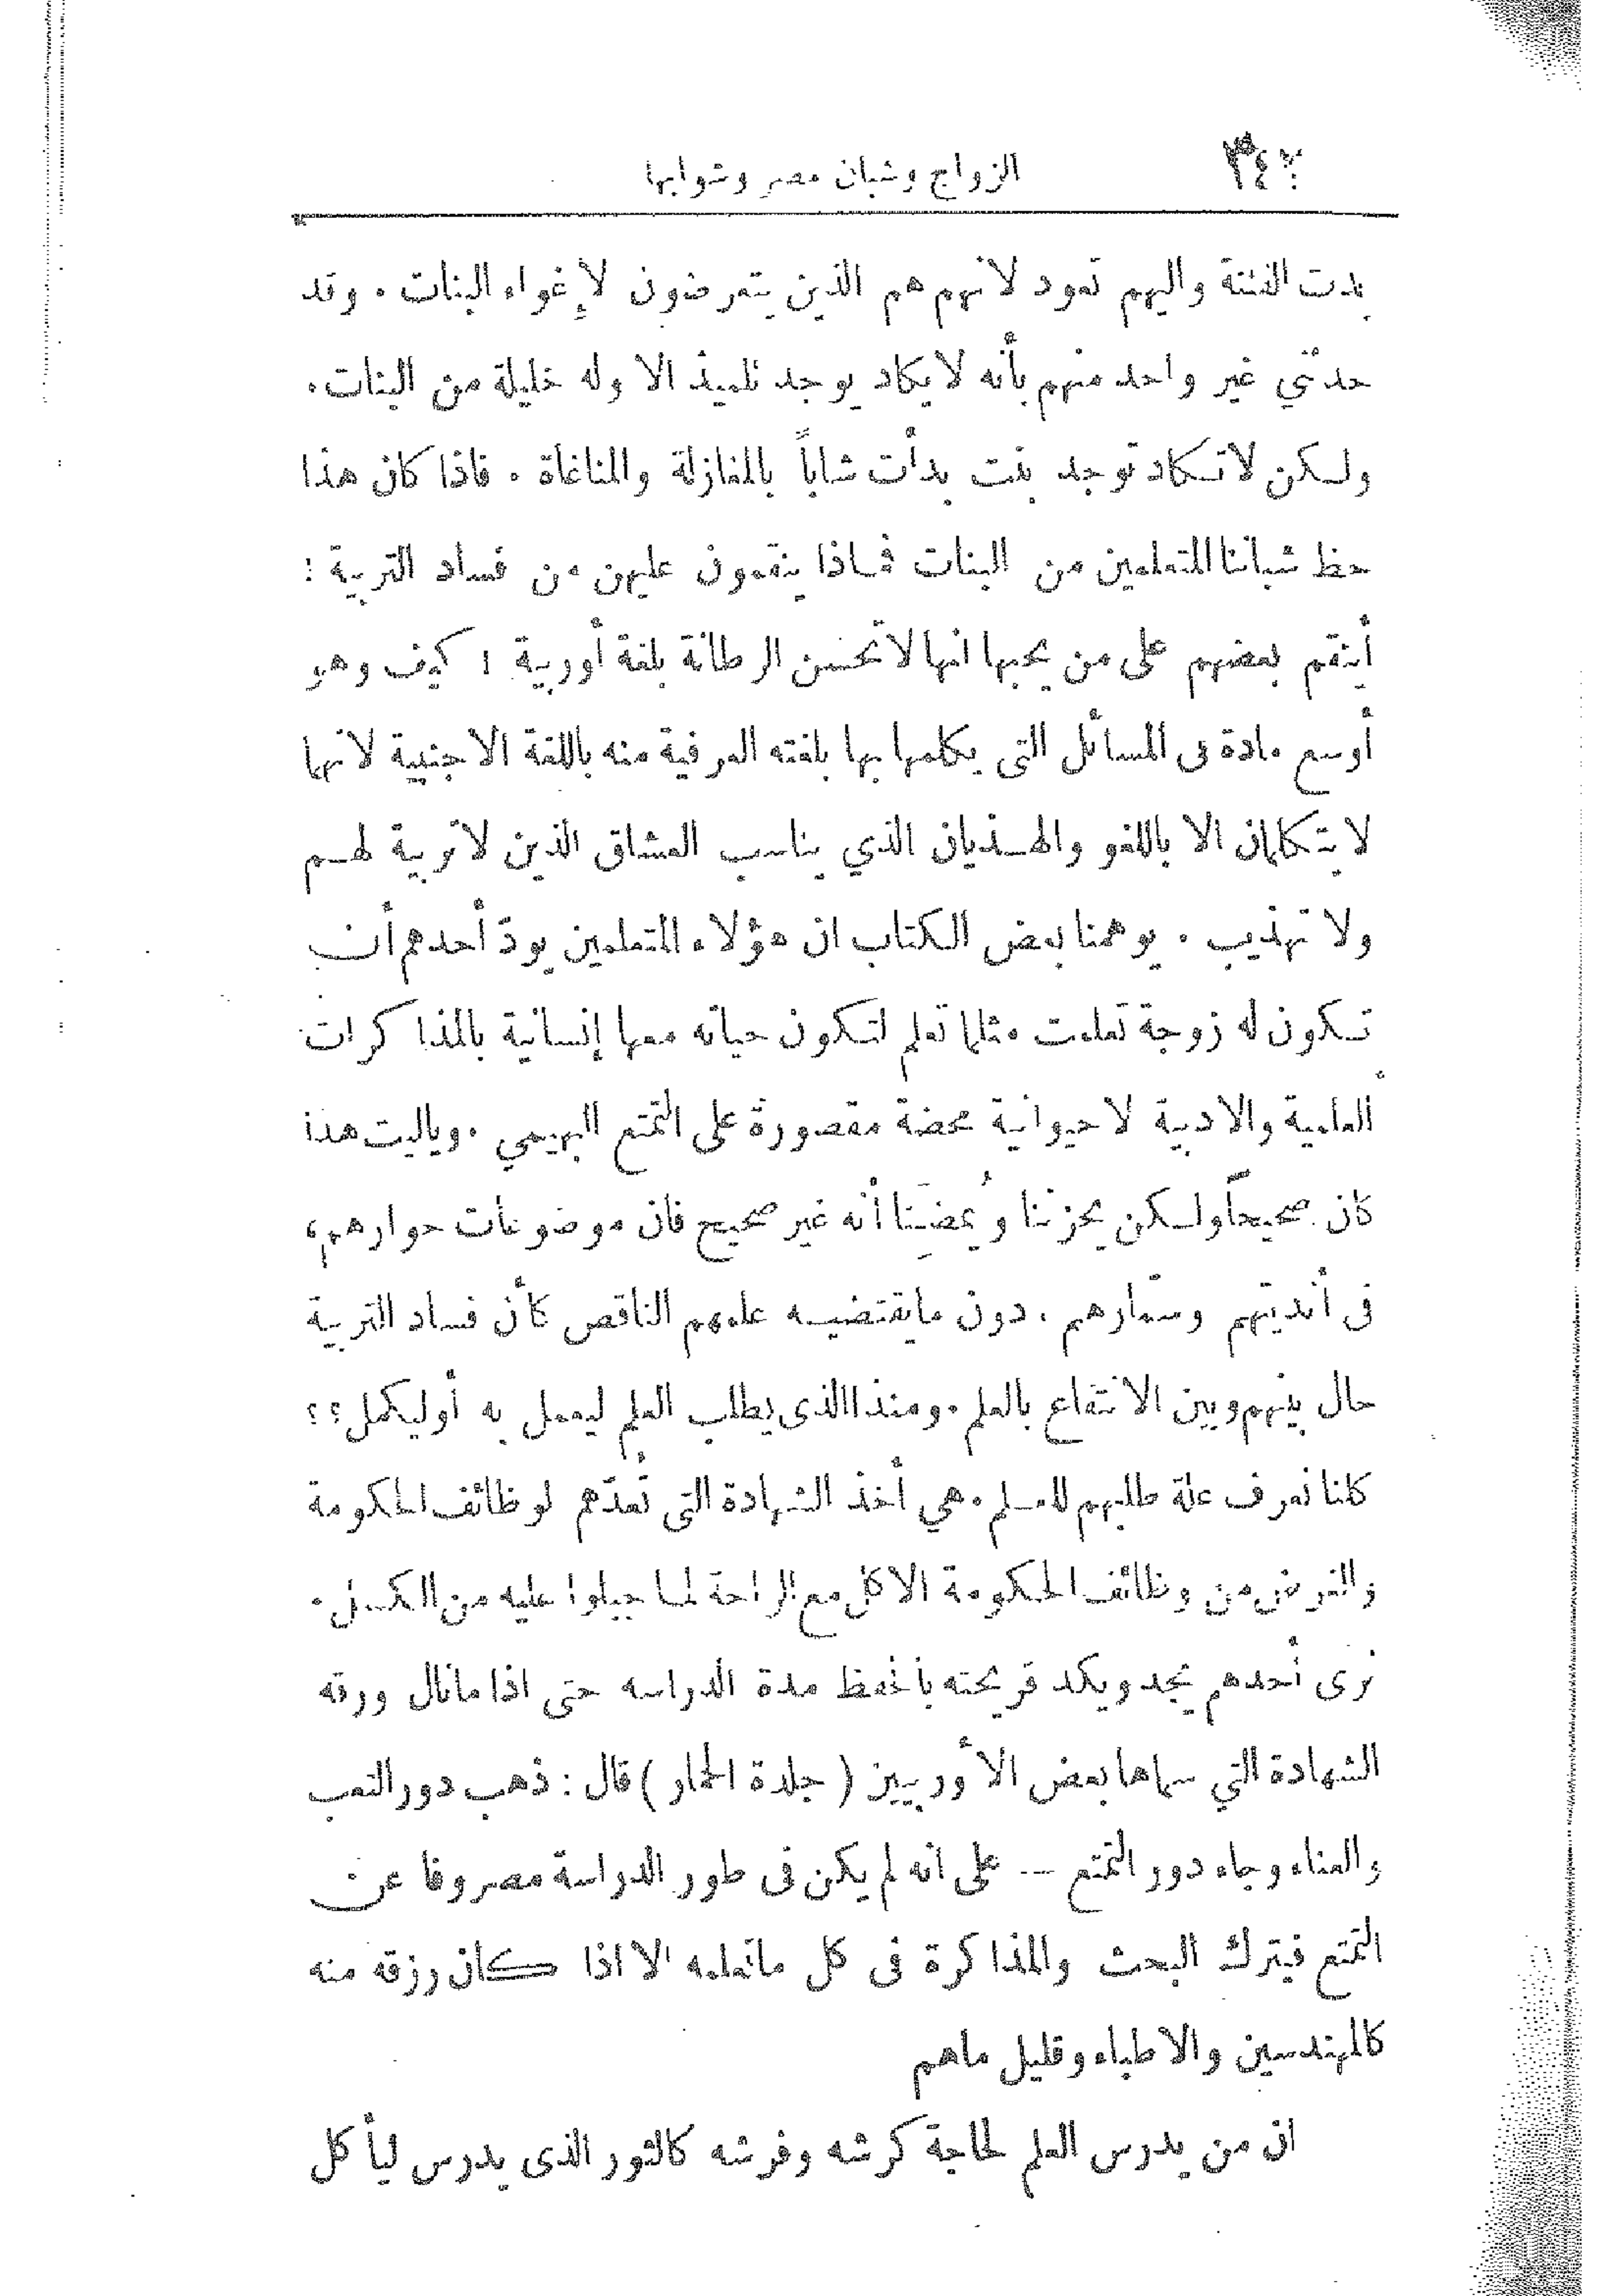 الزواج وشبان مصر وشوابها
بدت الفتنة واليهم تعود لانهم هم الذين يتعرضون لإغواء البنات . وقد
حدثني غير واحد منهم بأنه لا يكاد يوجد تلميذ الا وله خليلة من البنات .
ولكن لا تكاد توجد بنت بدأت شاباً بالمغازلة والمناغاة . فاذا كان هذا
حظ شباننا المتعلمين من البنات فماذا ينقمون عليهن من فساد التربية :
أينقم بعضهم على من يحبها انها لا تحسن الرطانة بلغة أوربية ؛ كيف وهو
أوسع مادة في المسائل التي يكلمها بها بلغته العرفية منه باللغة الاجنبية لانها
لا يتكلمان الا باللغو والهذيان الذي يناسب العشاق الذين لا تربية لهم
ولا تهذيب . يوهمنا بعض الكتاب ان هؤلاء المتعلمين يودّ أحدهم أن
تكون له زوجة تعلمت مثلما تعلم لتكون حياته معها إنسانية بالمذاكرات
العلمية والادبية لا حيوانية محضة مقصورة على التمتع البهيمي . وياليت هذا
كان صحيحاً ولكن يحزننا ويُمِضّنا أنه غير صحيح فان موضوعات حوارهم ،
في أنديتهم وسمّارهم . دون ما يقتضيه علمهم الناقص كأن فساد التربية
حال بينهم وبين الانتفاع بالعلم . ومنذا الذي يطلب العلم ليعمل به أو ليكمل ؟؟
كلنا نعرف علة طلبهم للعلم . هي أخذ الشهادة التي تُعدّهم لوظائف الحكومة
والغرض من وظائف الحكومة الاكل مع الراحة لما جبلوا عليه من الكسل .
نرى أحدهم يجد ويكد قريحته بالحفظ مدة الدراسه حتى اذا ما نال ورقه
الشهادة التي سماها بعض الأوربيين ( جلدة الحمار ) قال : ذهب دور التعب
والعناء وجاء دور التمتع -- على انه لم يكن في طور الدراسة مصروفا عن
التمتع فيترك البحث والمذاكرة في كل ما تعلمه الا اذا كان رزقه منه
كالمهندسين والاطباء وقليل ماهم
ان من يدرس العلم لحاجة كرشه وفرشه كالثور الذي يدرس ليأكل